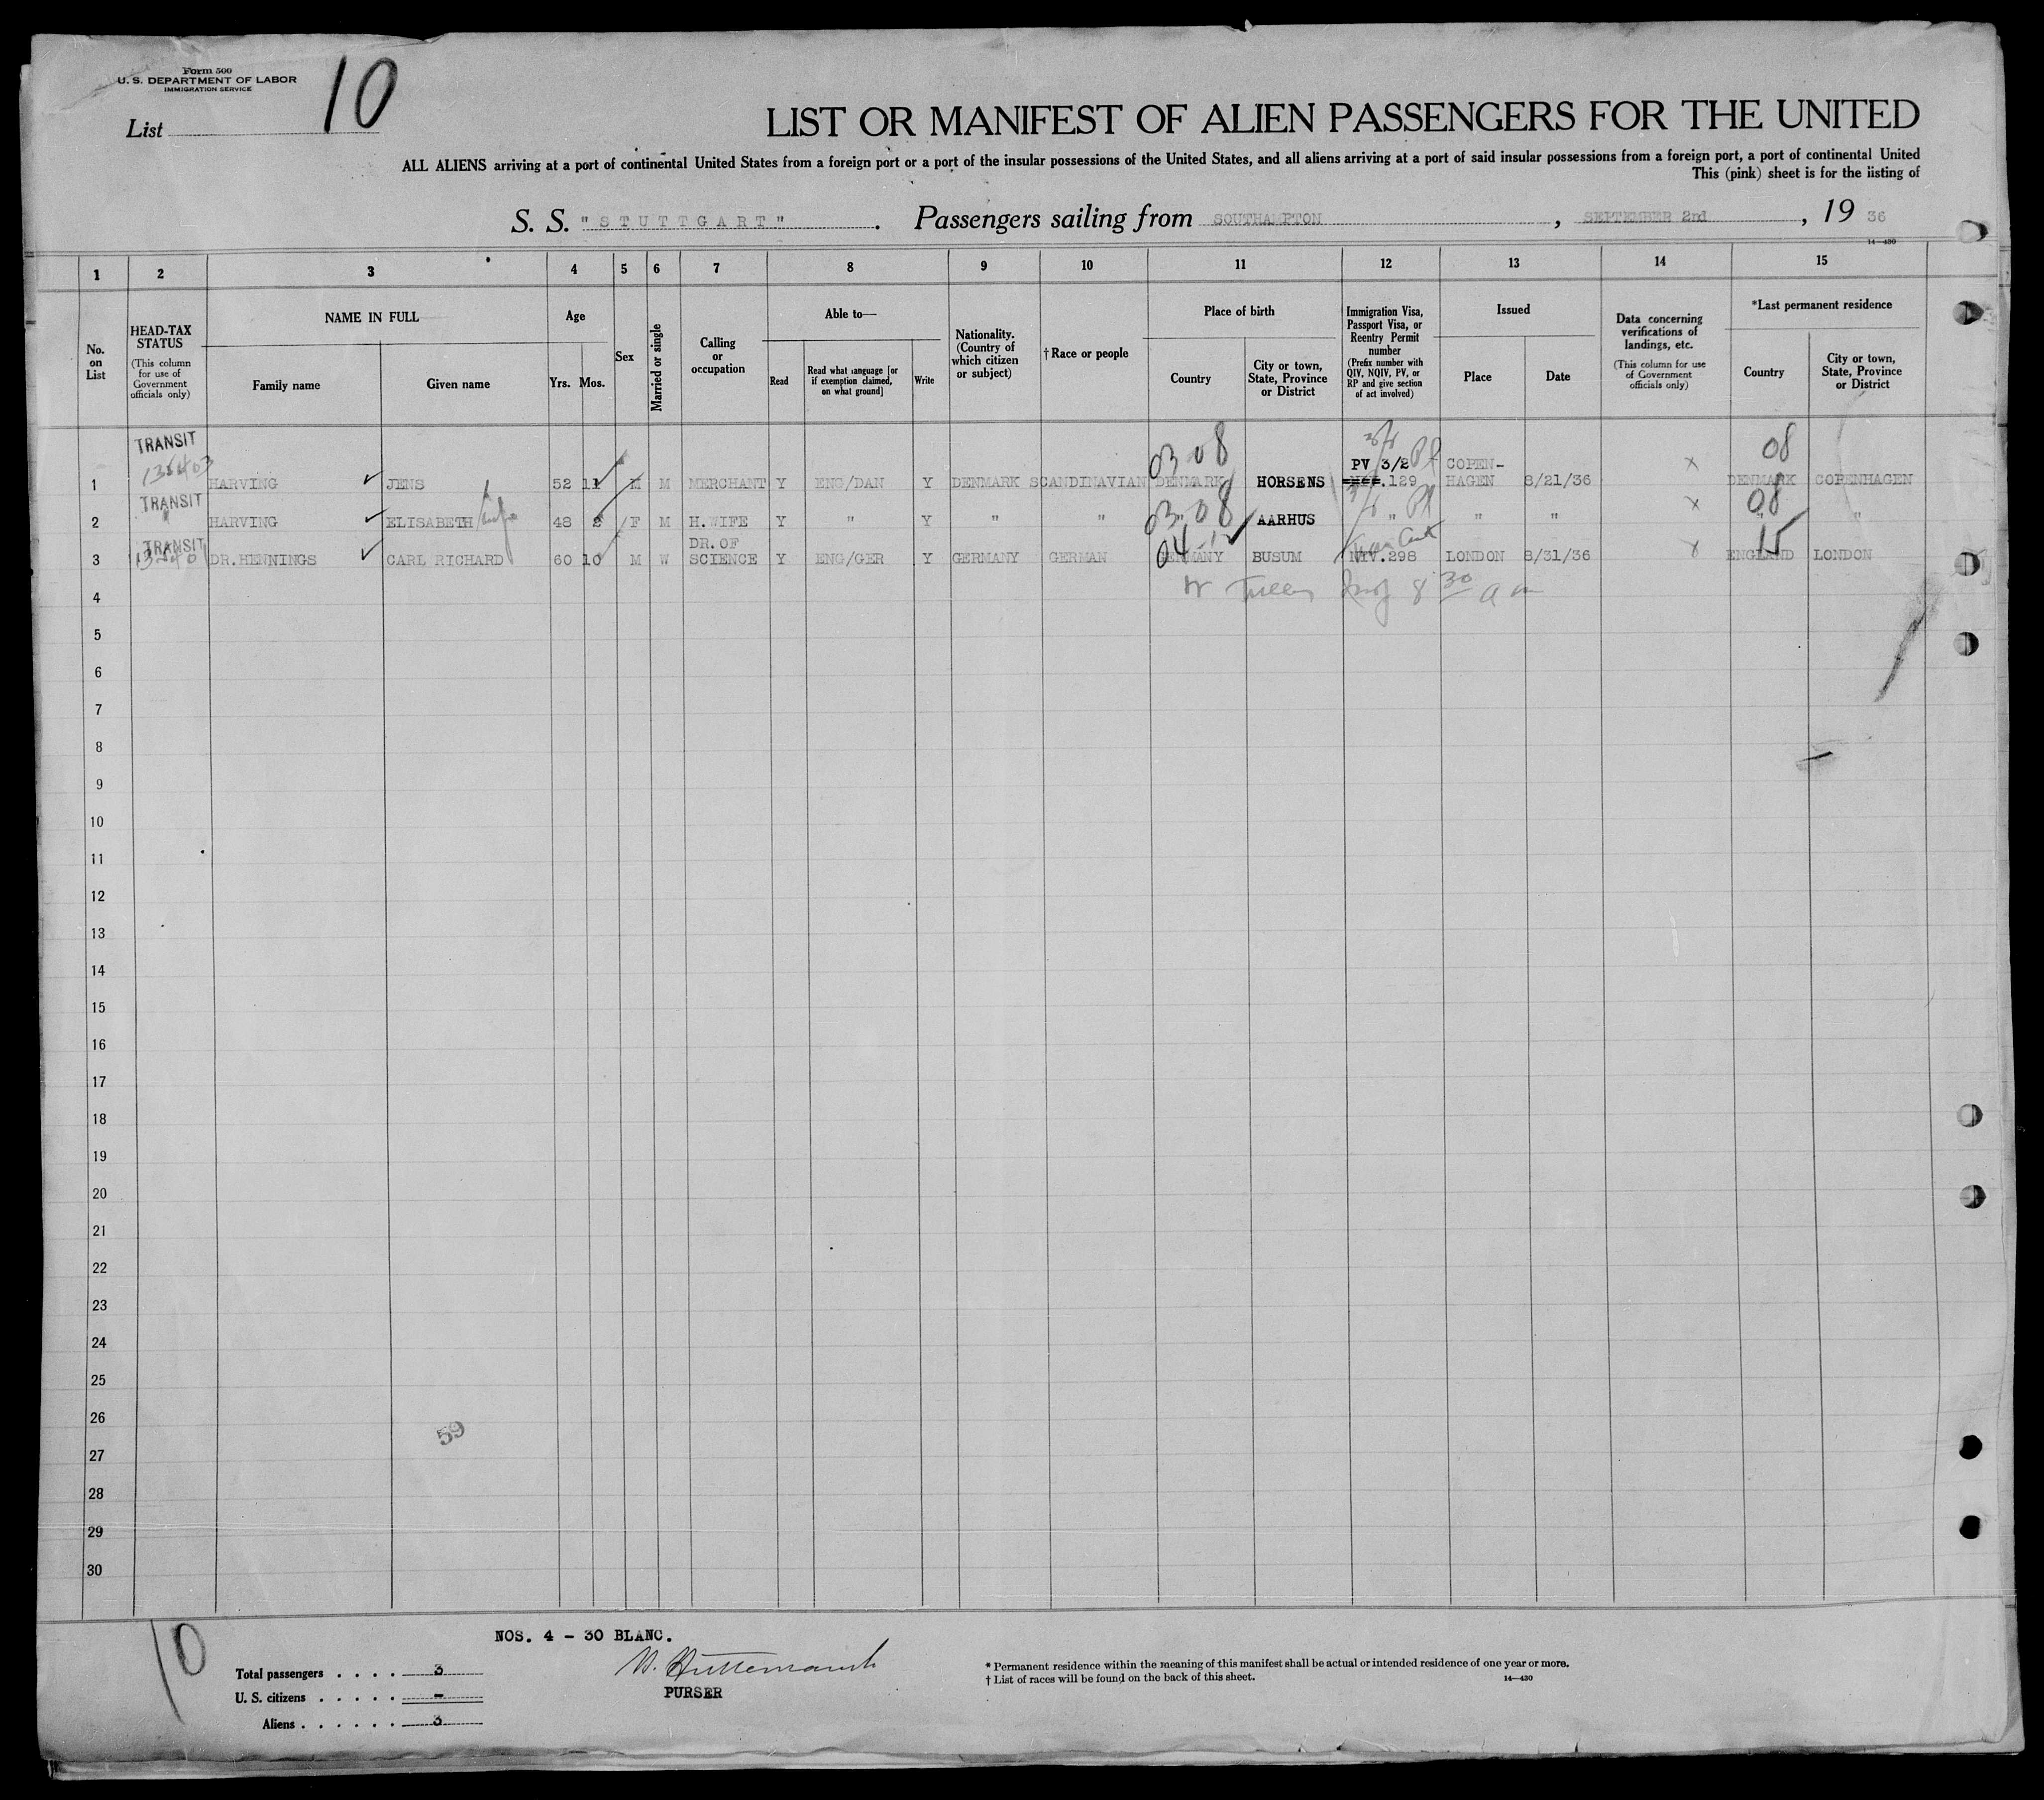 Form 500
U. S. DEPARTMENT OF LABOR
IMMIGRATION SERVICE
List 10
LIST OR MANIFEST OF ALIEN PASSENGERS FOR THE UNITED
ALL ALIENS arriving at a port of continental United States from a foreign port or a port of the insular possessions of the United States, and all aliens arriving at a port of said insular possessions from a foreign port, a port of continental United
This (pink) sheet is for the listing of
S. S. "STUTTGART" . Passengers sailing from SOUTHAMPTON , SEPTEMBER 2nd , 19 36
14—430
1 2 3 4 5 6 7 8 9 10 11 12 13 14 15
No. on List
HEAD-TAX STATUS
(This column for use of Government officials only)
NAME IN FULL
Family name
Given name
Age
Yrs. Mos.
Sex
Married or single
Calling or occupation
Able to—
Read
Read what language [or if exemption claimed, on what ground]
Write
Nationality. (Country of which citizen or subject)
† Race or people
Place of birth
Country
City or town, State, Province or District
Immigration Visa, Passport Visa, or Reentry Permit number
(Prefix number with QIV, NQIV, PV, or RP and give section of act involved)
Issued
Place
Date
Data concerning verifications of landings, etc.
(This column for use of Government officials only)
*Last permanent residence
Country
City or town, State, Province or District
TRANSIT 03 08 08
1 HARVING JENS 52 11 M M MERCHANT Y ENG/DAN Y DENMARK SCANDINAVIAN DENMARK HORSENS PV 3/2 .129 COPEN-HAGEN 8/21/36 x DENMARK COPENHAGEN
TRANSIT 03 08 08
2 HARVING ELISABETH 48 2 F M H.WIFE Y " Y " " " AARHUS " " " x " "
TRANSIT 04 15
3 DR.HENNINGS CARL RICHARD 60 10 M W DR. OF SCIENCE Y ENG/GER Y GERMANY GERMAN GERMANY BUSUM NIV.298 LONDON 8/31/36 x ENGLAND LONDON
4 8 30 a m
5
6
7
8
9
10
11
12
13
14
15
16
17
18
19
20
21
22
23
24
25
26
59
27
28
29
30
10
NOS. 4 - 30 BLANC.
Total passengers . . . . 3
U. S. citizens . . . . . -
Aliens . . . . . . 3
PURSER
* Permanent residence within the meaning of this manifest shall be actual or intended residence of one year or more.
† List of races will be found on the back of this sheet.
14—430